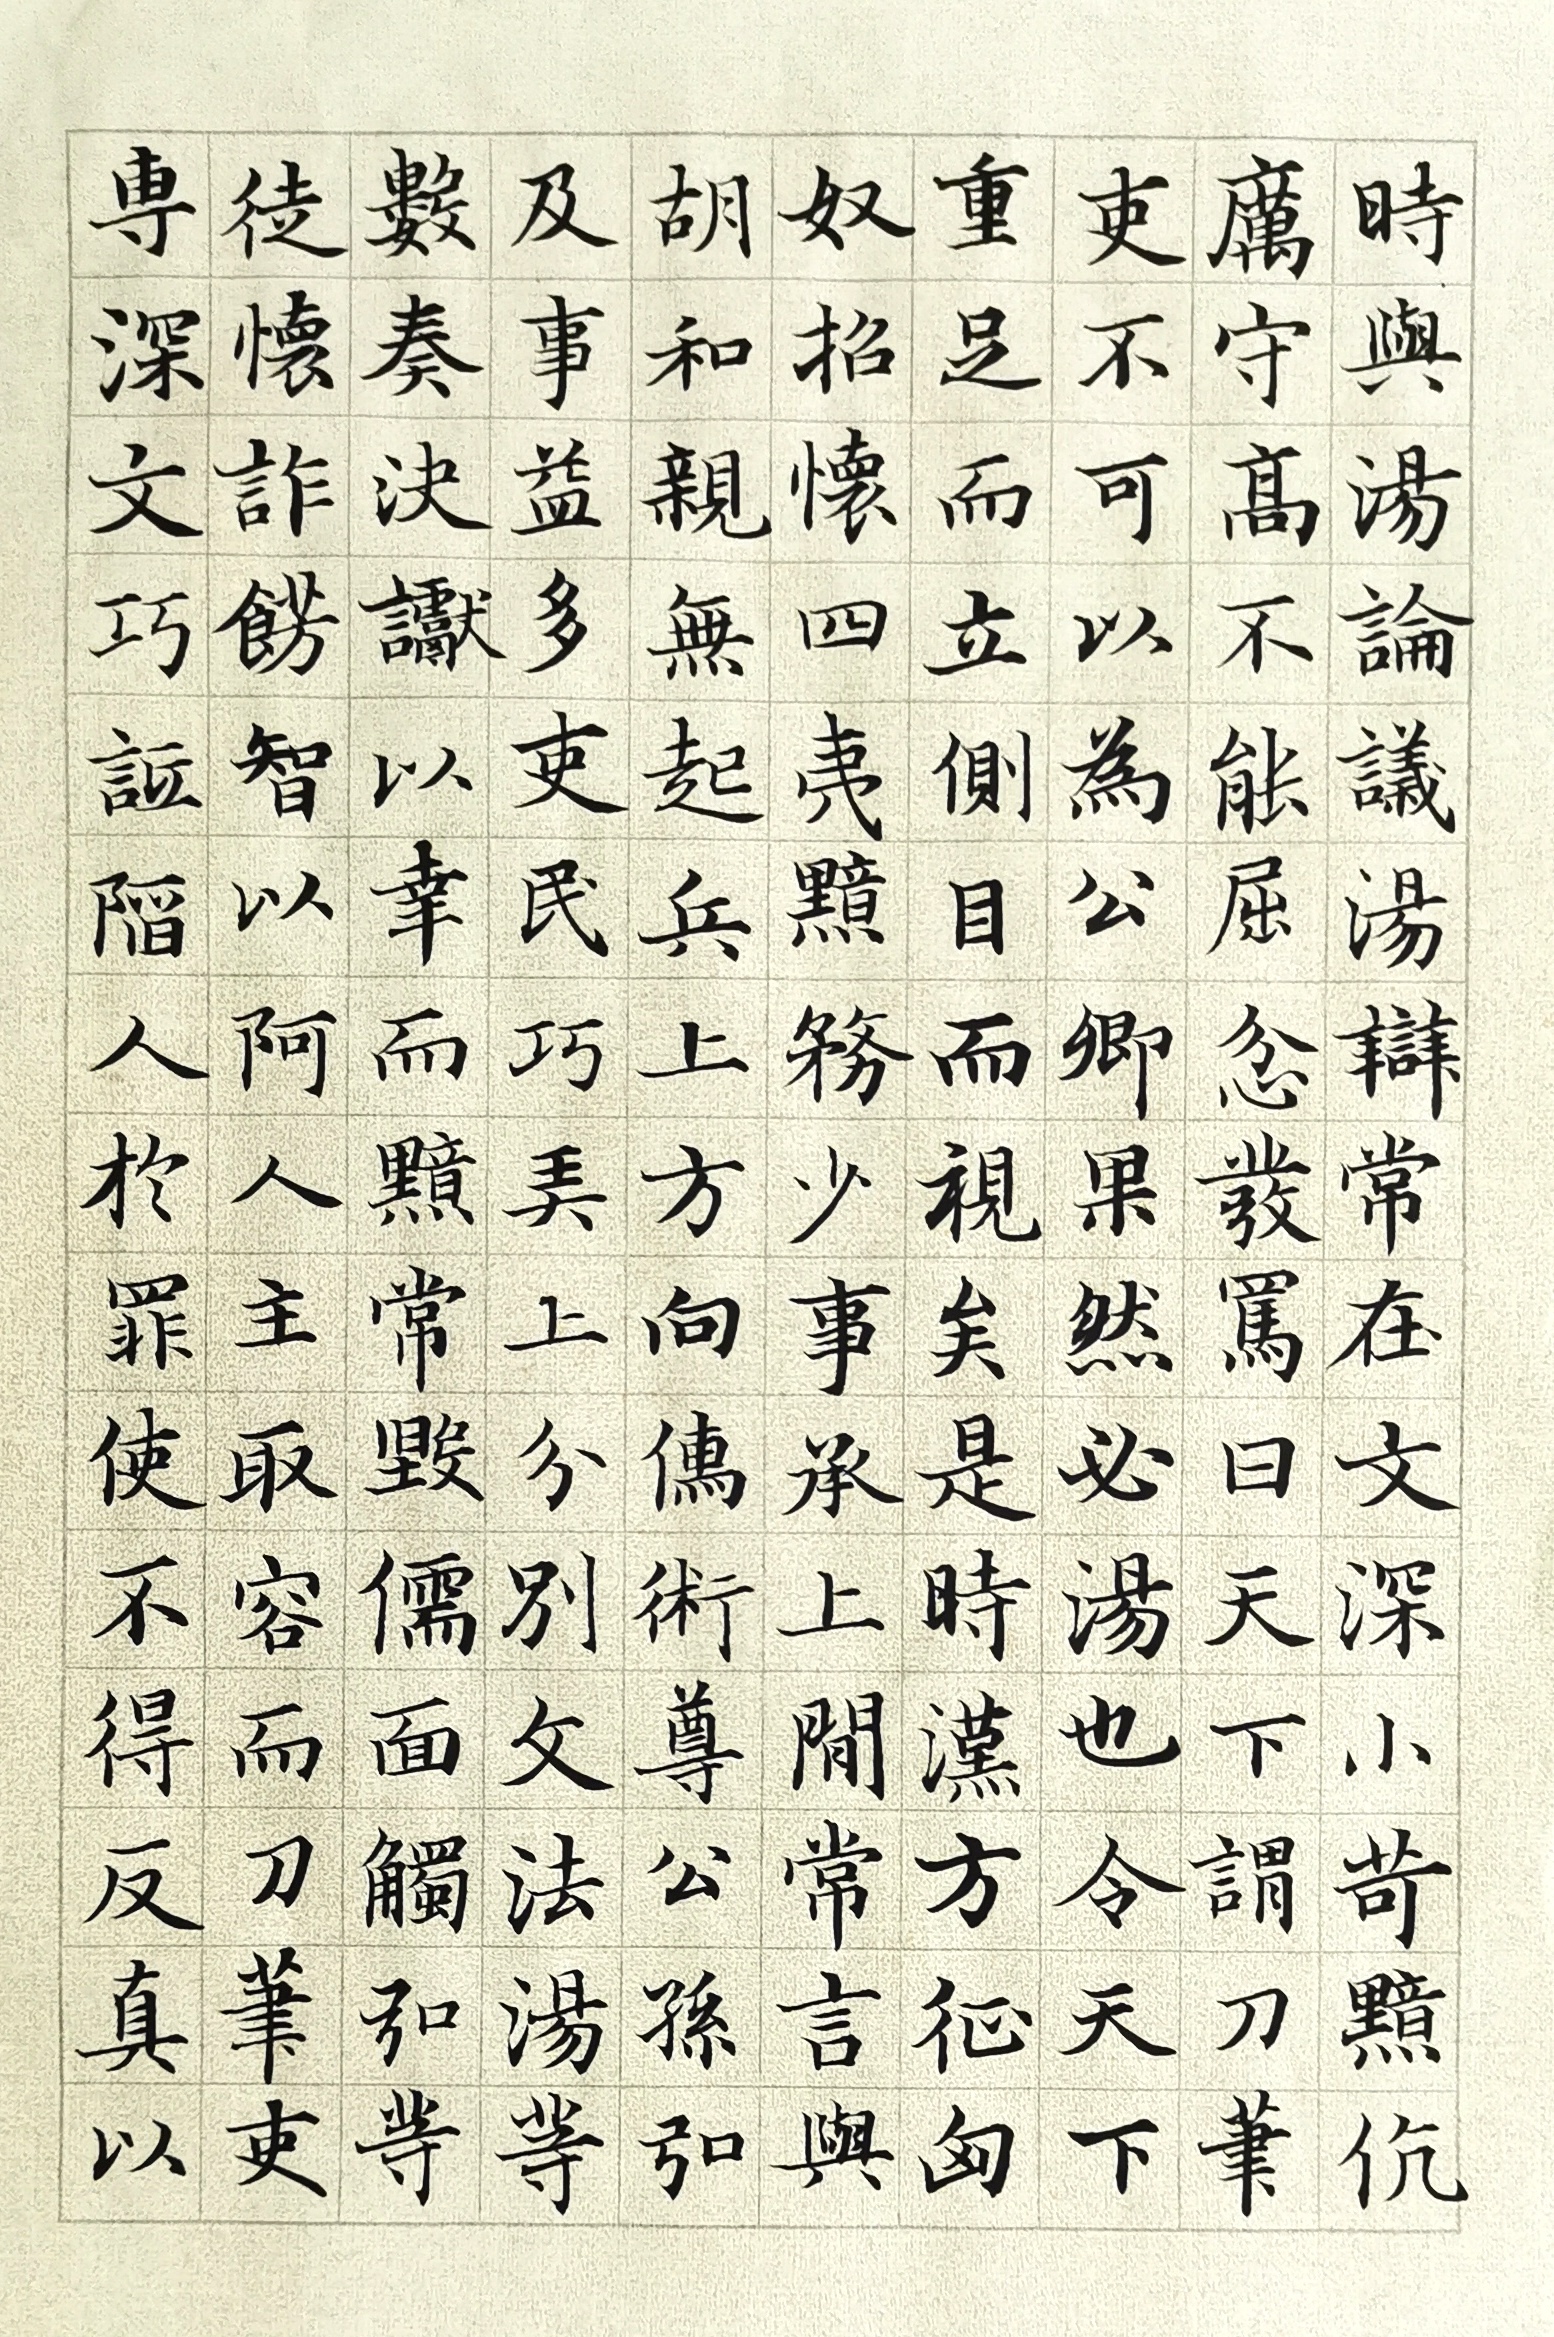 時與湯論議湯辯常在文深小苛黯伉
厲守高不能屈忿發罵曰天下謂刀筆
吏不可以為公卿果然必湯也令天下
重足而立側目而視矣是時漢方征匈
奴招懷四夷黯務少事承上間常言與
胡和親無起兵上方向儒術尊公孫弘
及事益多吏民巧弄上分別文法湯等
數奏決讞以幸而黯常毀儒面觸弘等
徒懷詐飾智以阿人主取容而刀筆吏
專深文巧詆陷人於罪使不得反真以